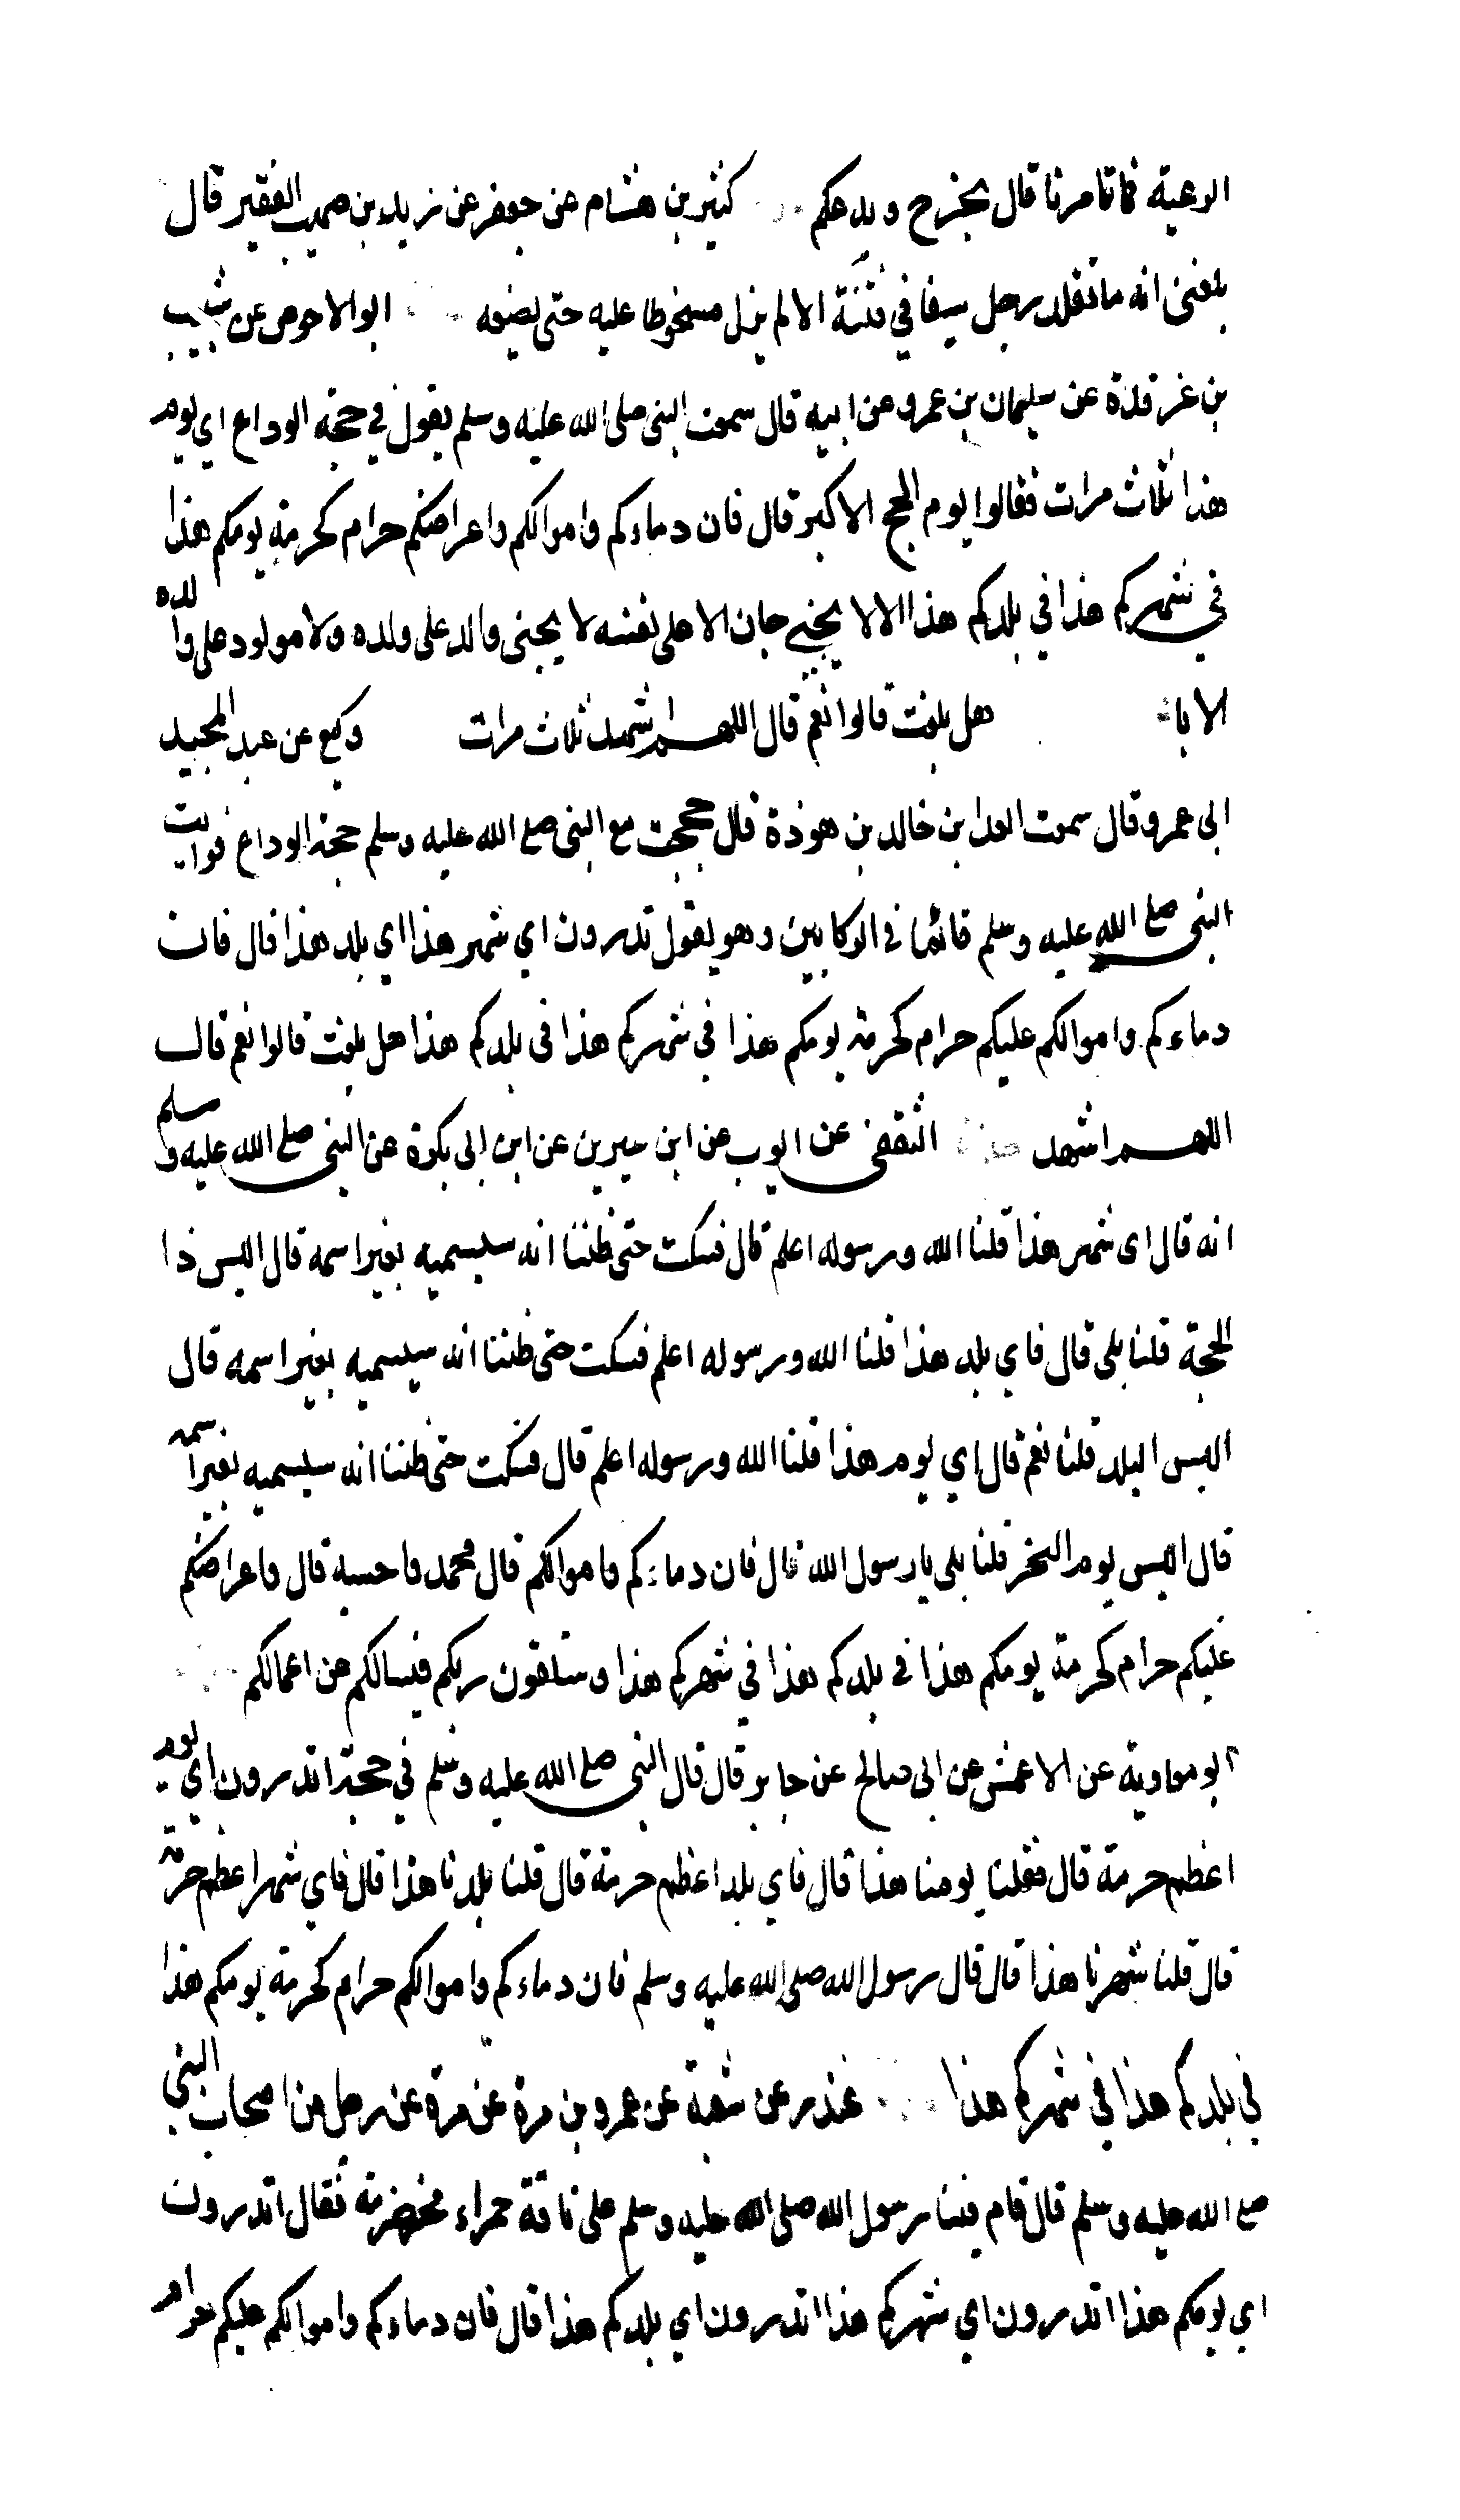 الوعية فاتامرنا قال يخرج ويدعكم كثير بن هشام عن جعفر عن يزيد بن صهيب الفقير قال
بلغني انه ما تقلد رجل سيفا في فتنة الا لم يزل مسخوطا عليه حتى يضعه ابو الاحوص عن شبيب
بن غرقدة عن سليمان بن عمرو عن ابيه قال سمعت النبي صلى الله عليه وسلم يقول في حجة الوداع اي يوم
هذا ثلاث مرات فقالوا يوم الحج الاكبر قال فان دماءكم واموالكم واعراضكم حرام كحرمة يومكم هذا
في شهركم هذا في بلدكم هذا الا لا يجني جان الا على نفسه لا يجني والد على ولده ولا مولود على والده
الا يا هل بلغت قالوا نعم قال اللهم اشهد ثلاث مرات وكيع عن عبد المجيد
ابى عمرو قال سمعت العدا بن خالد بن هوذة قال حججت مع النبي صلع الله عليه وسلم حجة الوداع فرايت
النبي صلع الله عليه وسلم قائما في الركابين وهو يقول تدرون اي شهر هذا اي بلد هذا قال فان
دماءكم واموالكم عليكم حرام كحرمة يومكم هذا في شهركم هذا في بلدكم هذا هل بلغت قالوا نعم قال
اللهم اشهد الثقفي عن ايوب عن ابن سيرين عن ابن ابى بكرة عن النبي صلع الله عليه وسلم
انه قال اى شهر هذا قلنا الله ورسوله اعلم قال فسكت حتى ظننا انه سيسميه بغير اسمه قال اليس ذا
الحجة قلنا بلى قال فاي بلد هذا قلنا الله ورسوله اعلم فسكت حتى ظننا انه سيسميه بغير اسمه قال
اليس البلد قلنا نعم قال اي يوم هذا قلنا الله ورسوله اعلم قال فسكت حتى ظننا انه سيسميه بغير اسمه
قال اليس يوم النحر قلنا بلى يا رسول الله قال فان دماءكم واموالكم قال محمد واحسبه قال واعراضكم
عليكم حرام كحرمة يومكم هذا في بلدكم هذا في شهركم هذا وستلقون ربكم فيسالكم عن اعمالكم
ابو معاوية عن الاعمش عن ابى صالح عن جابر قال قال النبي صلع الله عليه وسلم في حجته اتدرون اي يوم
اعظم حرمة قال فقلنا يومنا هذا قال فاي بلد اعظم حرمة قال قلنا بلدنا هذا قال فاي شهر اعظم حرمة
قال قلنا شهرنا هذا قال قال رسول الله صلى الله عليه وسلم فان دماءكم واموالكم حرام كحرمة يومكم هذا
في بلدكم هذا في شهركم هذا غندر عن شعبة عن عمرو بن مرة عن مرة عن رجل من اصحاب النبي
صلع الله عليه وسلم قال قام فينا رسول الله صلى الله عليه وسلم على ناقة حمراء مخضرمة فقال اتدرون
اي يومكم هذا اتدرون اي شهركم هذا اتدرون اي بلدكم هذا قال فان دماءكم واموالكم عليكم حرام